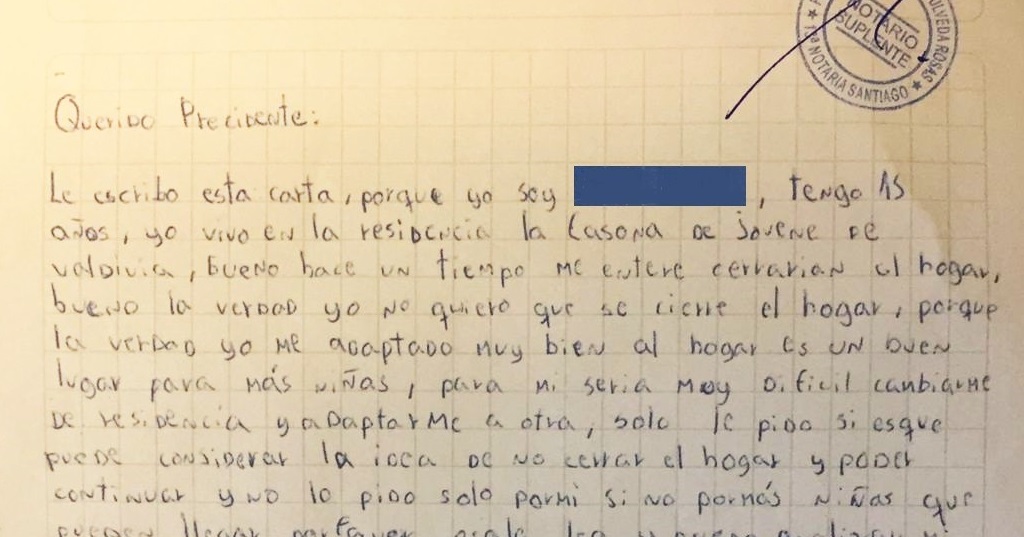 NOTARIO
SUPLENTE
OLVEDA ROSAS ★ 1ra NOTARIA SANTIAGO ★
Querido Precidente:
Le escribo esta carta, porque yo soy , tengo 15
años, yo vivo en la residencia la Casona de jovene de
valdivia, bueno hace un tiempo me entere cerrarian el hogar,
bueno la verdad yo no quiero que se cierre el hogar, porque
la verdad yo me adaptado muy bien al hogar es un buen
lugar para más niñas, para mi seria muy dificil cambiarme
de residencia y adaptarme a otra, solo le pido si esque
puede considerar la idea de no cerrar el hogar y poder
continuar y no lo pido solo pormi si no pormás niñas que
pueden llegar porfaver